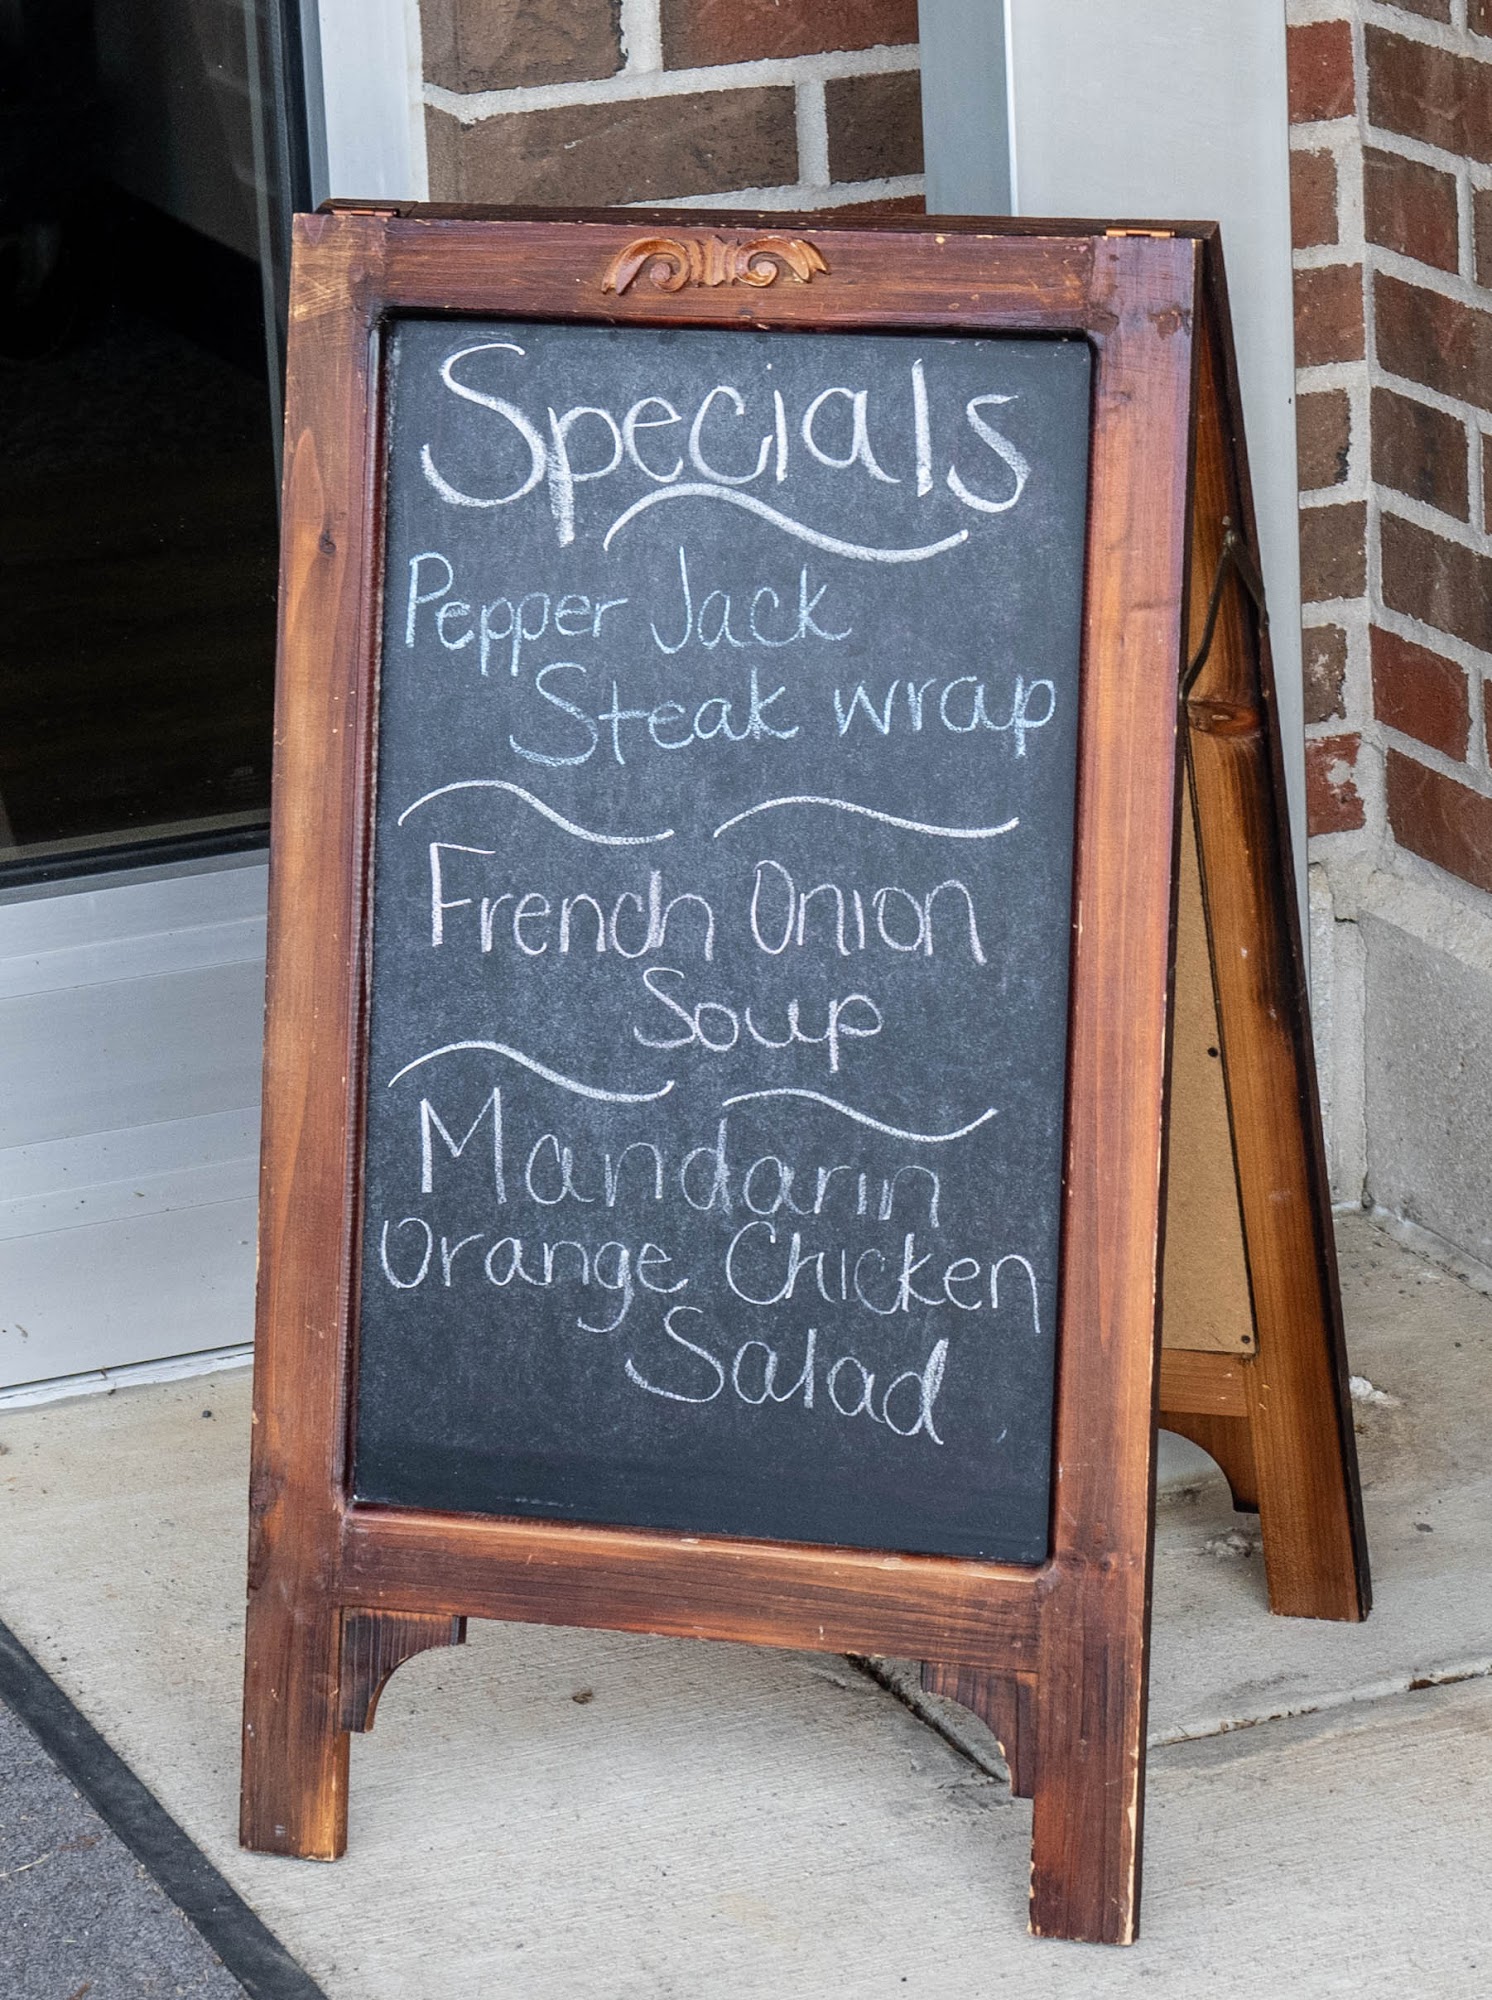 Specials
Pepper Jack
Steak wrap
French Onion
Soup
Mandarin
Orange Chicken
Salad